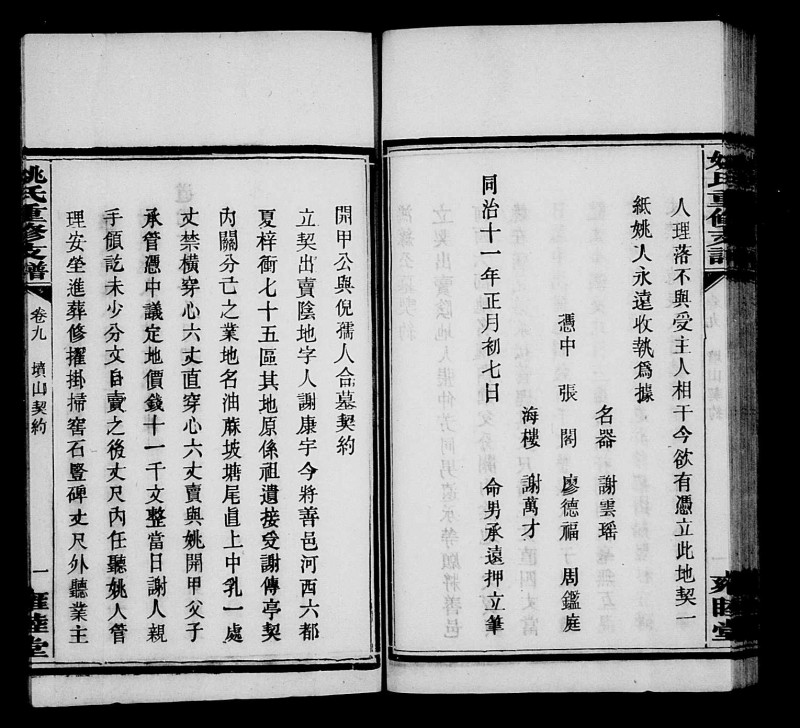 人理落不與受主人相干今欲有憑立此地契一
紙姚人永遠收執爲據
名器 謝雲瑶
憑中 張閣 廖德福 周鑑庭
海樓 謝萬才
命男承遠押立筆
同治十一年正月初七日
開甲公與倪孺人合墓契約
立契出賣陰地字人謝康宇今將善邑河西六都
夏梓衝七十五區其地原係祖遺接受謝傳亭契
內關分己之業地名油蔴坡塘尾直上中乳一處
丈禁橫穿心六丈直穿心六丈賣與姚開甲父子
承管憑中議定地價錢十一千文整當日謝人親
手領訖未少分文自賣之後丈尺內任聽姚人管
理安塋進葬修擢掛掃窖石豎碑丈尺外聽業主
姚氏重修支譜
卷九 墳山契約
一
雍睦堂